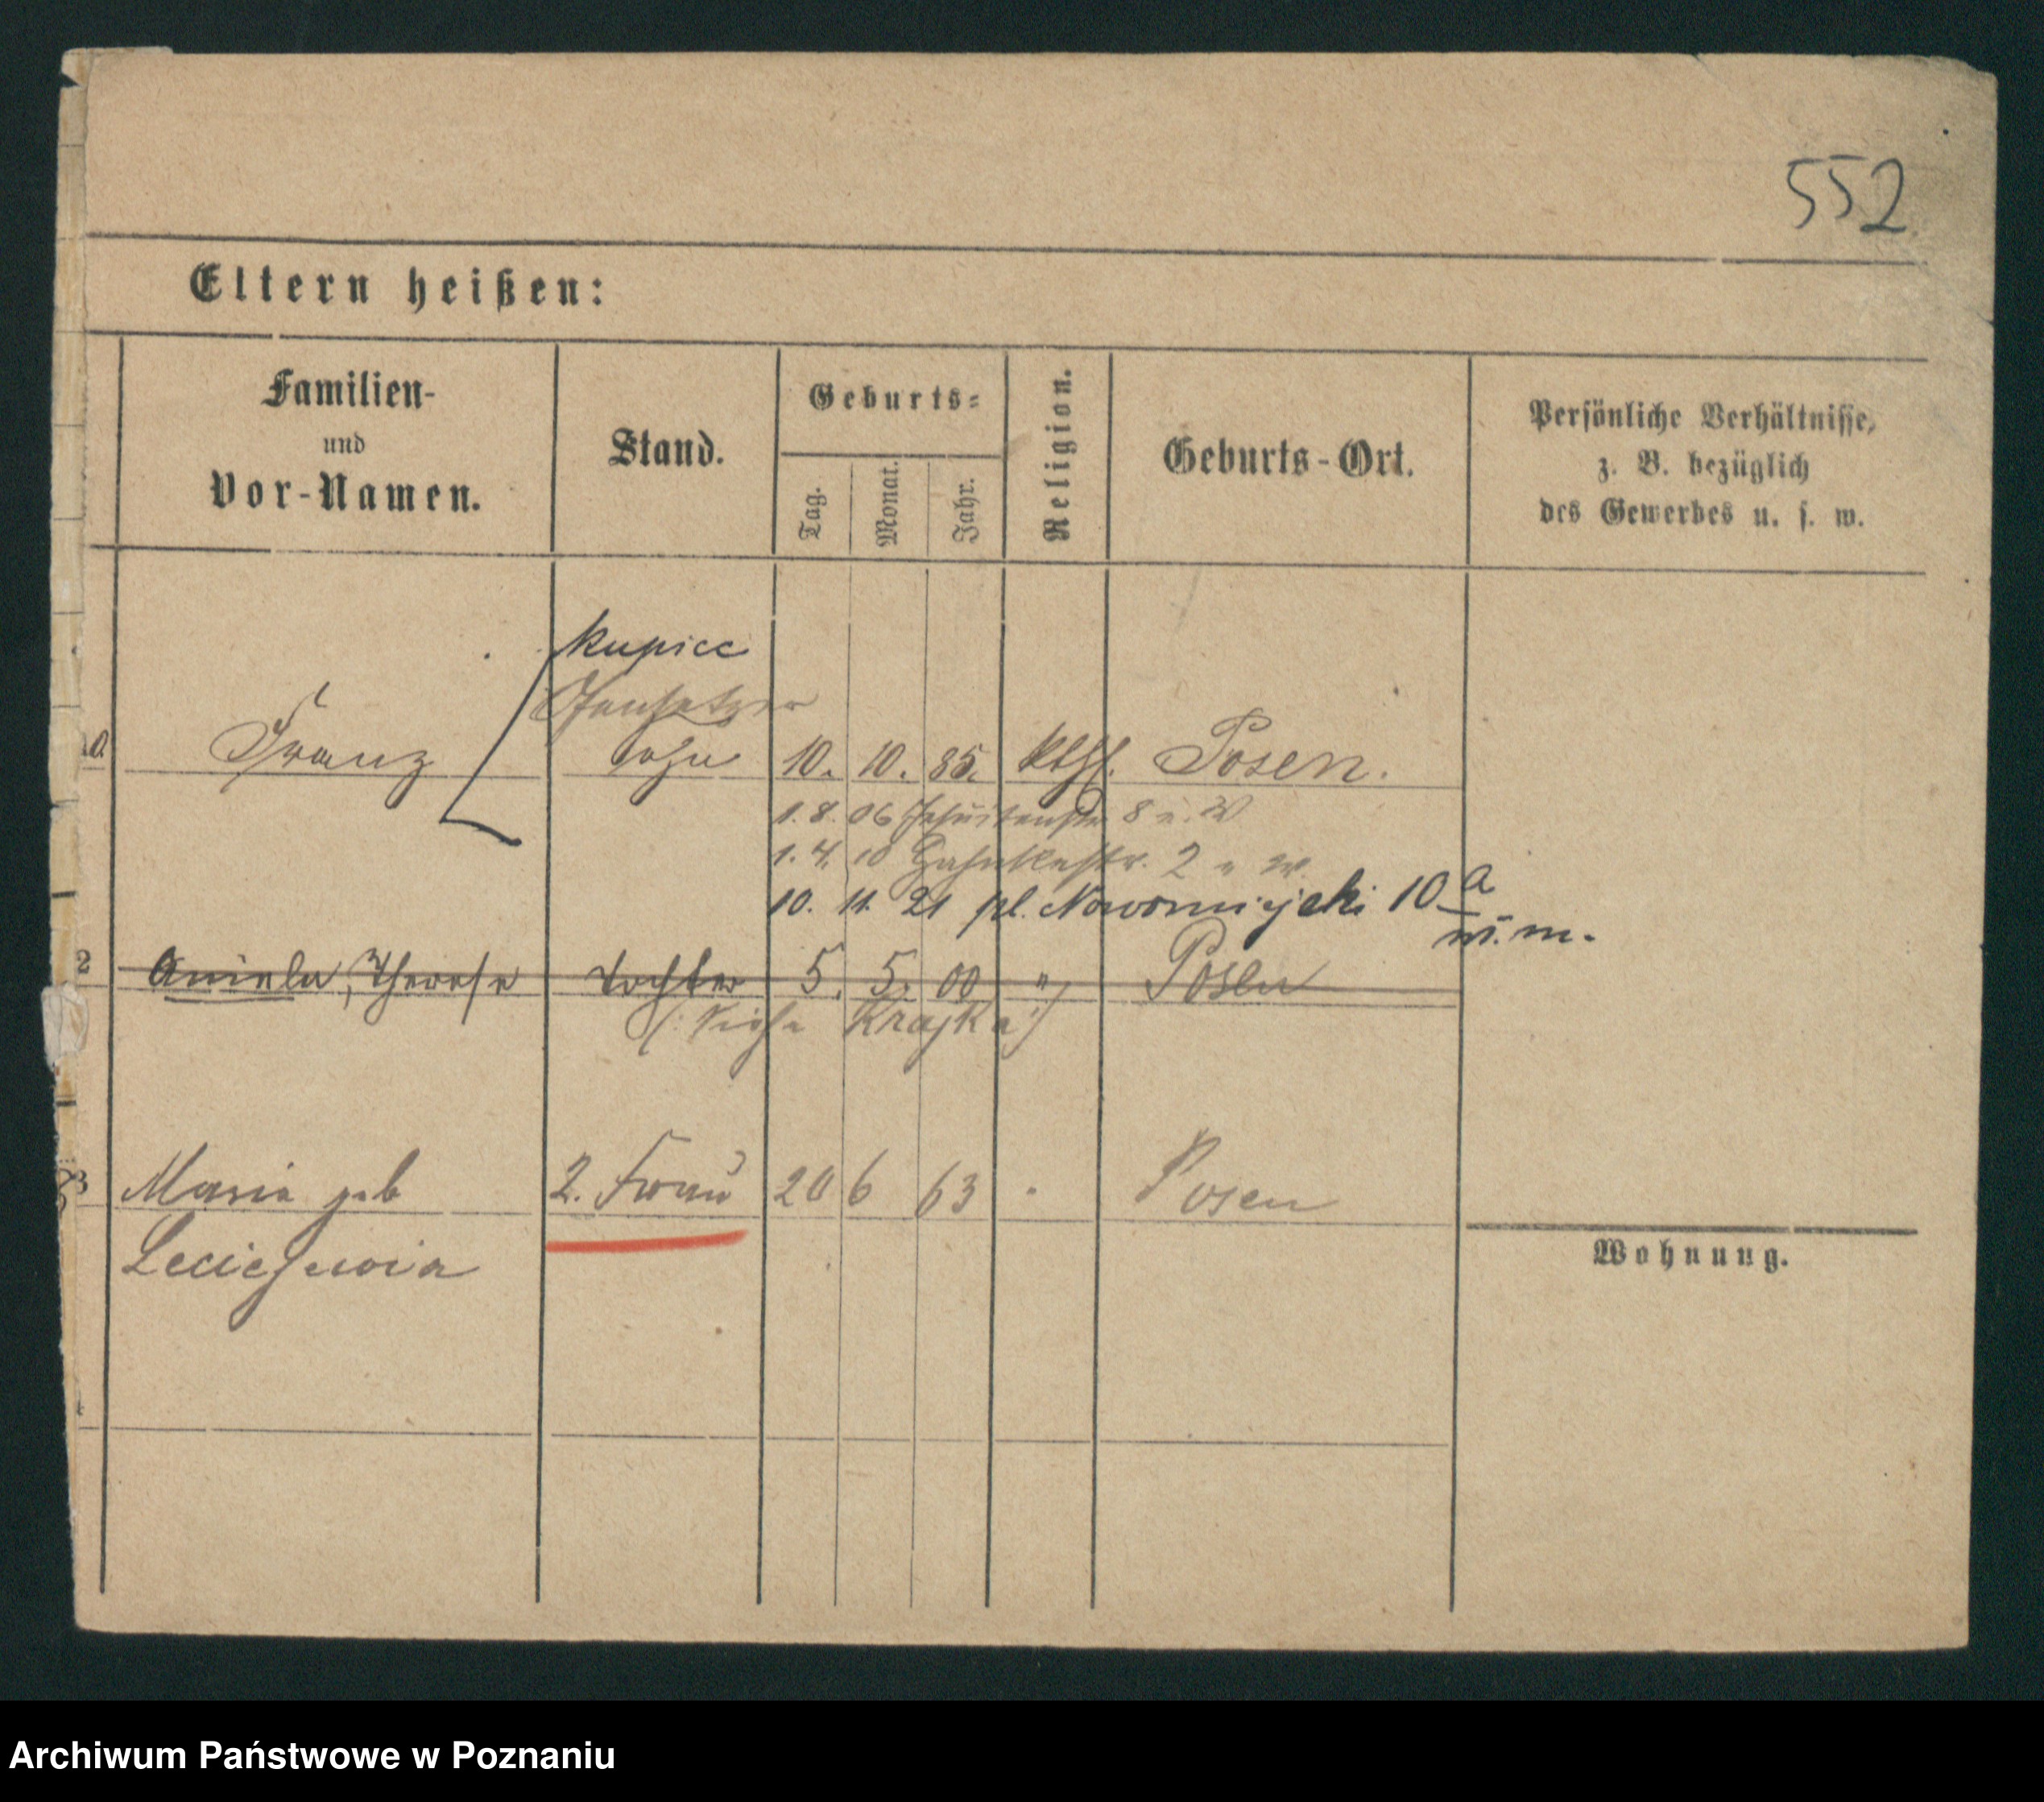 552
Eltern heißen:
Familien-
und
Vor-Namen.
Stand.
Geburts-
Tag.
Monat.
Jahr.
Religion.
Geburts-Ort.
Persönliche Verhältnisse,
z. B. bezüglich
des Gewerbes u. s. w.
Kupiec
Franz
Sohn 10. 10. 85. kthl. Posen.
1. 8. 06 Jesuitenstr 8 u. W
1. 4. 10 2 u W.
10. 11. 21 pl. Nowomiejski 10 a
m. m.
2 Aniela, Therese Tochter 5. 5. 00 " Posen
(: siehe Krajka :)
3 Maria geb 2. Frau 20 6 63 Posen
Wohnung.
Archiwum Państwowe w Poznaniu